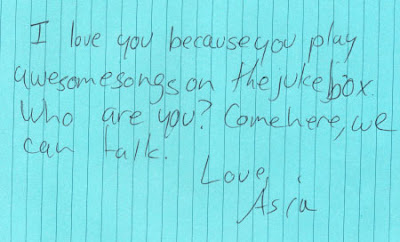 I love you because you play
awesome songs on the jukebox.
Who are you? Come here, we
can talk.
Love,
Asia